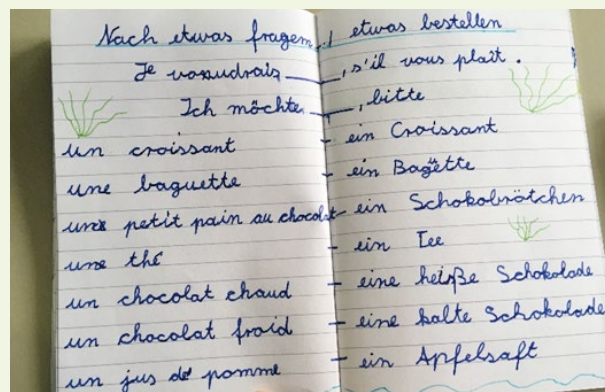 Nach etwas fragen / etwas bestellen
Je voudrais ______, s'il vous plaît.
Ich möchte ______, bitte
un croissant - ein Croissant
une baguette - ein Bagette
un petit pain au chocolat - ein Schokobrötchen
une thé - ein Tee
un chocolat chaud - eine heiße Schokolade
un chocolat froid - eine kalte Schokolade
un jus de pomme - ein Apfelsaft